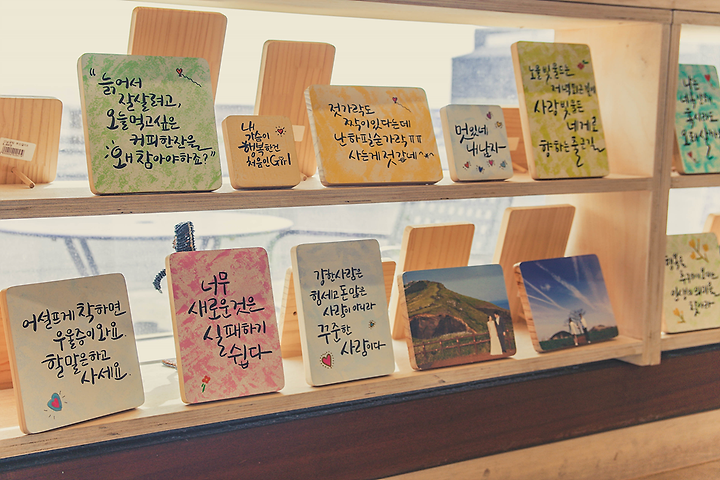 "늙어서
잘살려고,
오늘먹고싶은
커피한잔을
왜참아야하죠?"
내
가슴이
행복한건
처음인Girl
젓가락도
짝이있다는데
난하필숟가락ㅠㅠ
사는게젓같네^^
멋있네
내남자
노을빛물드는
저녁퇴근길에
사랑빛물든
네게로
향하는출근길
나는
어설프게착하면
우울증이와요.
할말은하고
사세요.
너무
새로운것은
실패하기
쉽다
강한사람은
힘세고돈많은
사람이아니라
꾸준한
사람이다
행복은